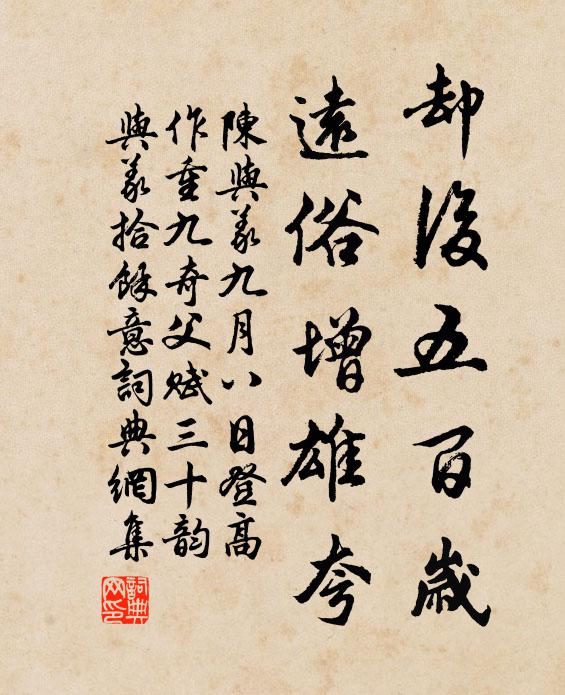 却後五百歲
遠俗增雄夸
陳與義九月八日登高
作重九奇父賦三十韵
與義拾餘意詞典網集
詞典網印